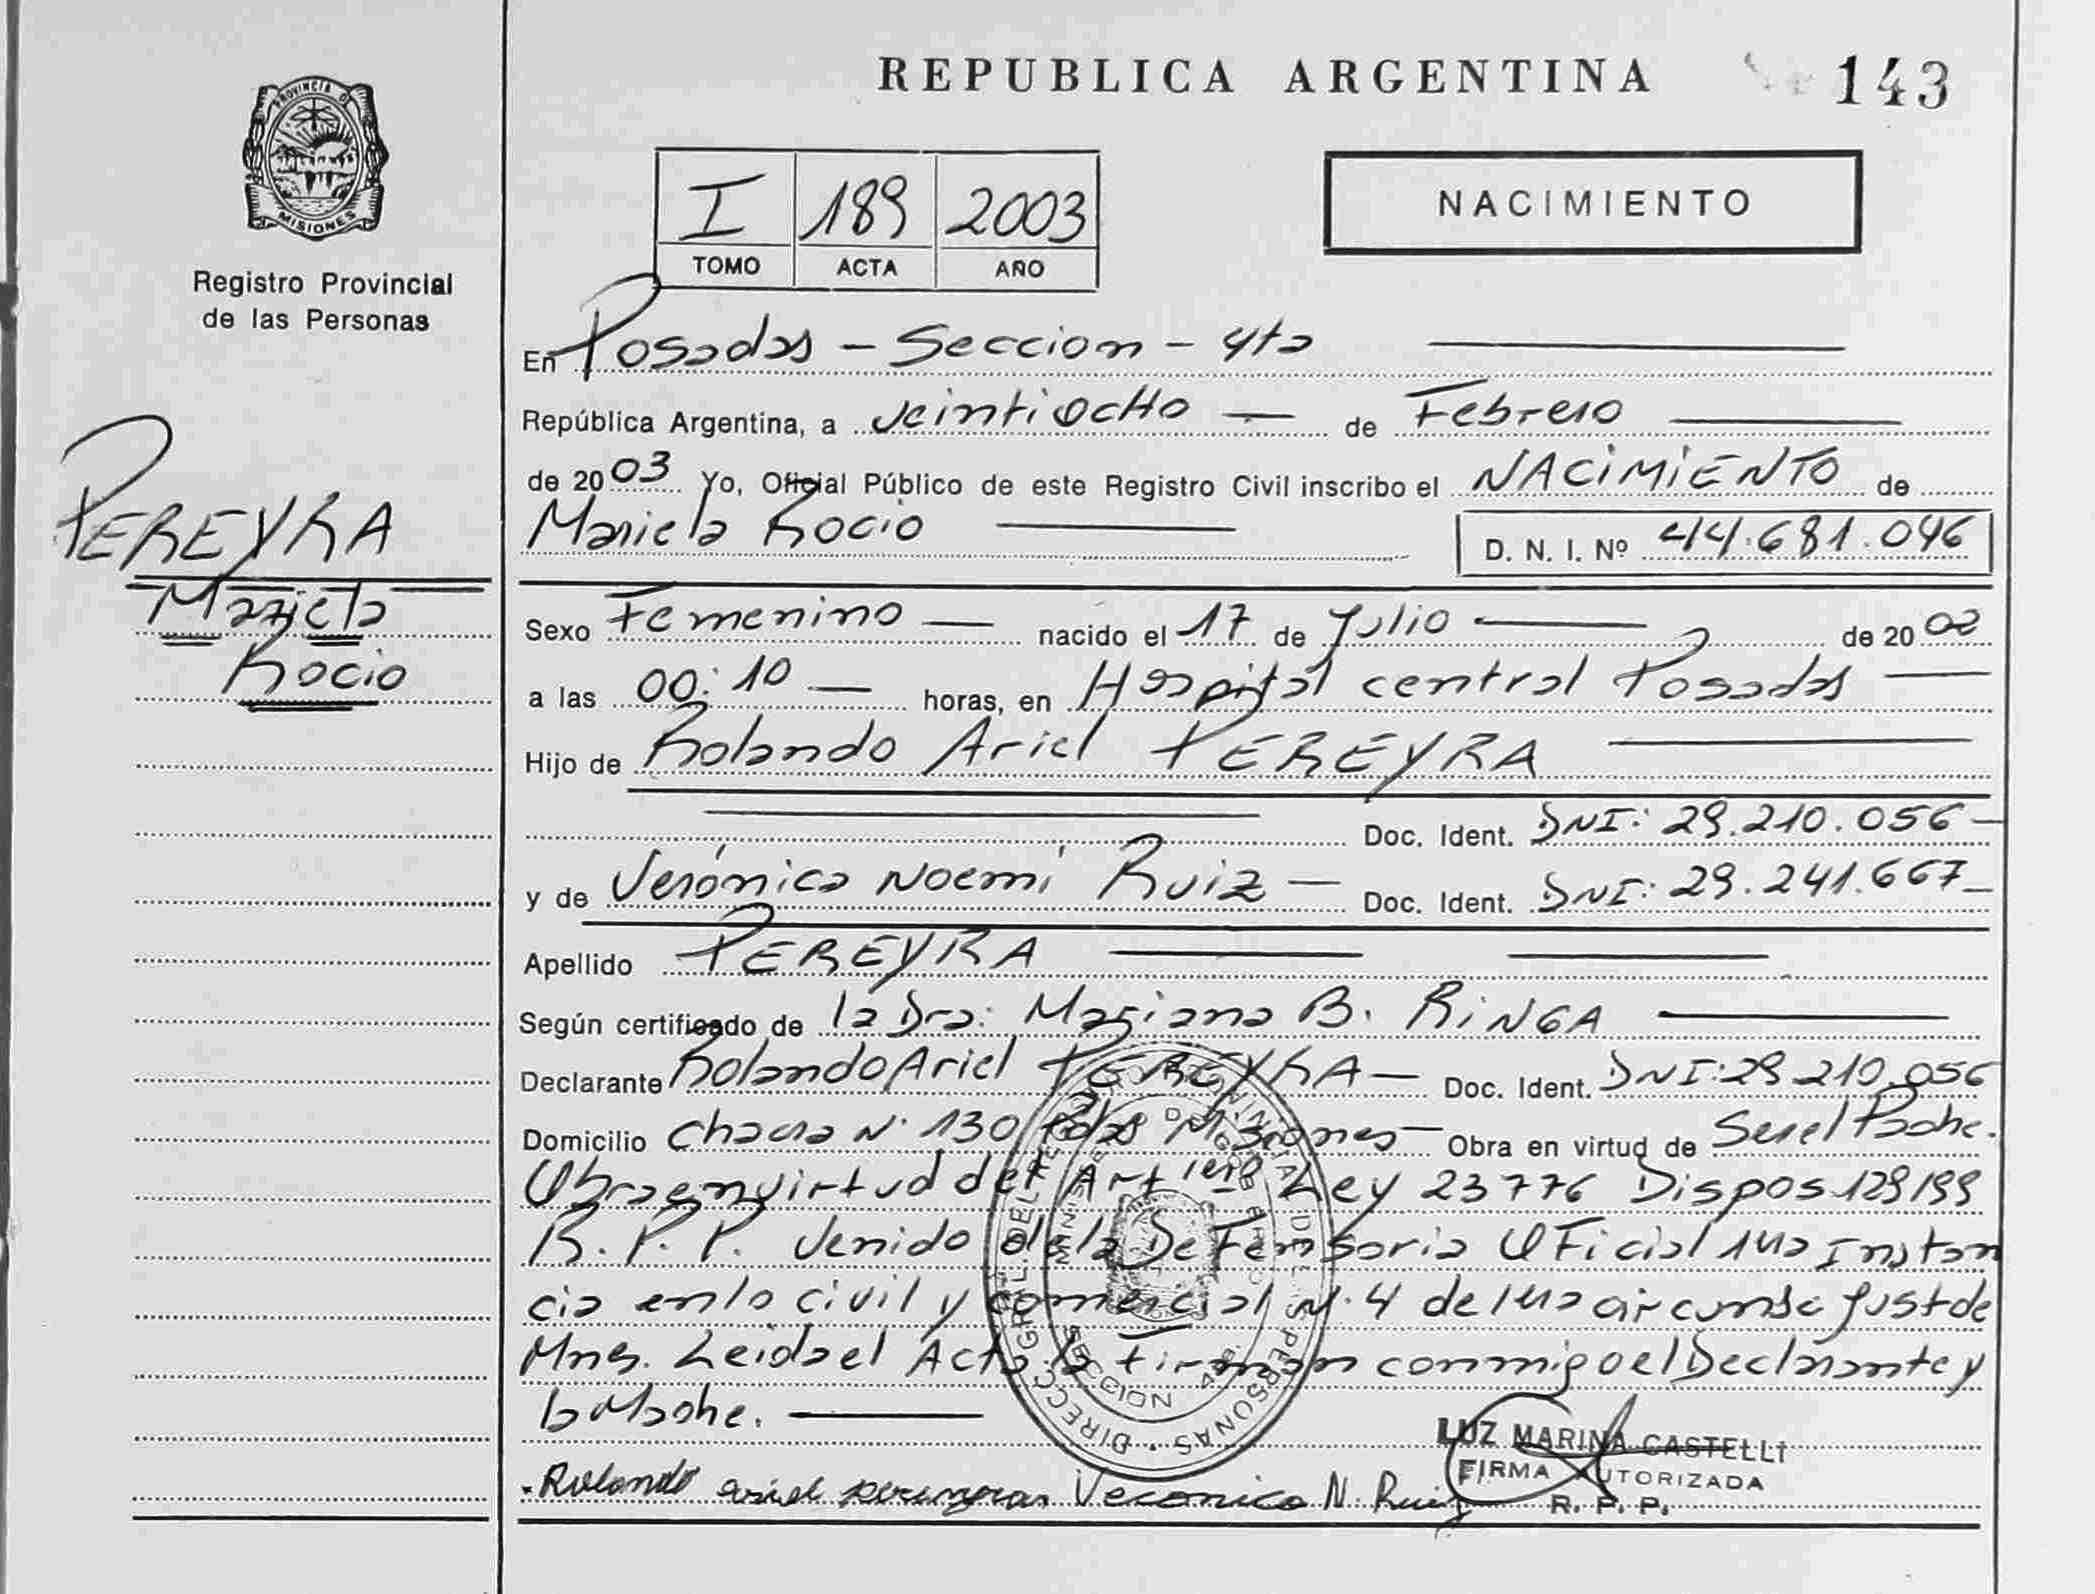 REPUBLICA ARGENTINA
143
PROVINCIA DE
MISIONES
Registro Provincial
de las Personas
I 189 2003
TOMO ACTA AÑO
NACIMIENTO
PEREYRA
Mariela
Rocio
En Posadas - Seccion - 4ta
República Argentina, a veintiocho de Febrero
de 2003 Yo, Oficial Público de este Registro Civil inscribo el NACIMIENTO de
Mariela Rocio D. N. I. Nº 44.681.046
Sexo Femenino nacido el 17 de Julio de 2002
a las 00:10 horas, en Hospital central Posadas
Hijo de Rolando Ariel PEREYRA
Doc. Ident. DNI: 29.210.056
y de Verónica Noemí Ruiz Doc. Ident. DNI: 29.241.667
Apellido PEREYRA
Según certificado de la Dra: Mariana B. RINGA
Declarante Rolando Ariel PEREYRA Doc. Ident. DNI: 29 210.056
Domicilio Chacra N. 130 Pdas Misiones Obra en virtud de Ser el Padre.
Obra en virtud del Art 1ero Ley 23776 Dispos 129/99
R.P.P. Venido de la Defensoria Oficial 1ra Instan
cia en lo civil y comercial N.4 de 1ra circunsc Just de
Mnes. Leida el Acta la firman conmigo el Declarante y
la Madre.
Rolando ariel Veronica N. Ruiz
LUZ MARINA CASTELLI
FIRMA AUTORIZADA
R. P. P.